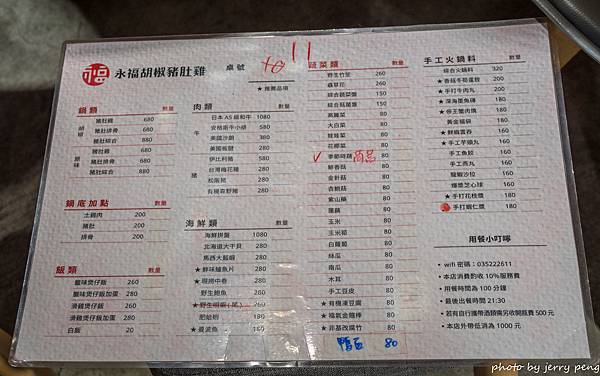 永福胡椒豬肚雞
桌號 +0 11
★ 推薦品項
鍋類 數量
胡椒
豬肚雞 680
豬肚排骨 680
豬肚綜合 880
原味
豬肚雞 680
豬肚排骨 680
豬肚綜合 880
鍋底加點 數量
土雞肉 200
豬肚 200
排骨 200
飯類 數量
臘味煲仔飯 260
臘味煲仔飯加蛋 280
滑雞煲仔飯 260
滑雞煲仔飯加蛋 280
白飯 20
肉類 數量
牛
日本A5級和牛 1080
安格斯牛小排 580
美國沙朗 380
美國板腱 280
豬
伊比利豬 580
台灣梅花豬 280
松阪豬 280
有機霜野豬 280
海鮮類 數量
海鮮拼盤 1080
北海道大干貝 280
馬西大飯蝦 280
★ 鮮味鱸魚片 280
★ 現撈中卷 280
野生鮑魚 280
★ 野生明蝦(尾) 260
肥蛤蜊 180
★ 曼波魚 280
蔬菜類 數量
野生竹笙 260
蟲草花 260
綜合蔬菜盤 150
綜合菇菌盤 150
高麗菜 80
大白菜 80
娃娃菜 80
花椰菜 80
✓ 季節時蔬 萵苣 80
鮮香菇 80
金針菇 80
杏鮑菇 80
紫山藥 80
蓮藕 80
玉米 80
玉米筍 80
白蘿蔔 80
絲瓜 80
南瓜 80
木耳 80
手工豆皮 80
★ 有機凍豆腐 80
★ 福氣金錢棒 80
★ 非基改腐竹 80
鴨血 80
手工火鍋料 數量
綜合火鍋料 320
★ 香菇冬筍蛋餃 200
★ 手打牛肉丸 200
★ 深海墨魚磚 180
★ 帝王蟹肉燒 180
黃金福袋 160
★ 鮮蝦雲吞 160
★ 手工芋頭丸 160
手工魚餃 160
手工燕丸 160
龍蝦沙拉 160
爆漿芝心球 160
★ 手打花枝漿 180
手打蝦仁漿 180
用餐小叮嚀
• wifi 密碼：035222611
• 本店消費酌收 10% 服務費
• 用餐時間為 100 分鐘
• 最後出餐時間 21:30
• 若有自行攜帶酒類需另收開瓶費 500 元
• 本店外帶低消為 1000 元
photo by jerry peng